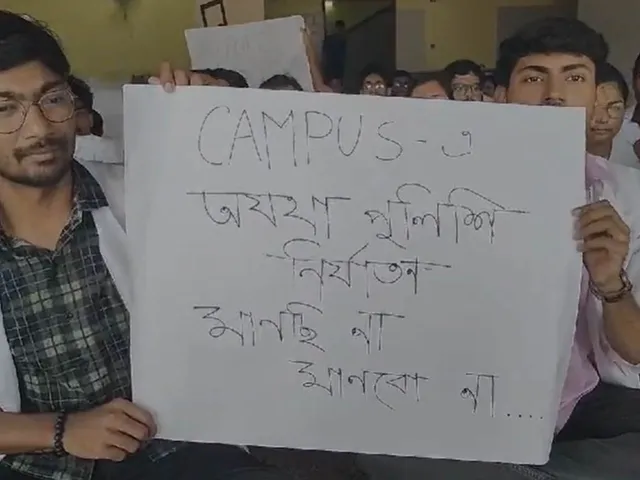 CAMPUS-এ
অযথা পুলিশি
নির্যাতন
মানছি না
মানবো না....